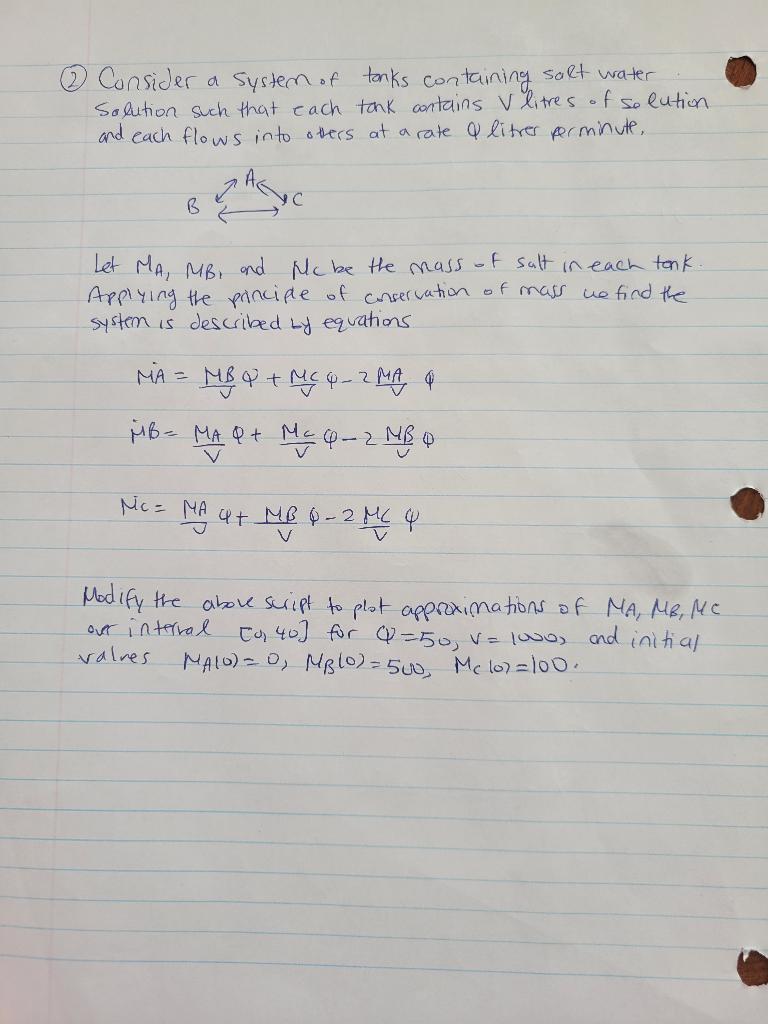 ② Consider a system of tanks containing salt water
Solution such that each tank contains V litres of solution
and each flows into others at a rate φ litres per minute.
A
B C
Let MA, MB, and Mc be the mass of salt in each tank.
Applying the principle of conservation of mass we find the
system is described by equations
ṀA = MB/V φ + MC/V φ - 2 MA/V φ
ṀB = MA/V φ + Mc/V φ - 2 MB/V φ
Ṁc = MA/V φ + MB/V φ - 2 MC/V φ
Modify the above script to plot approximations of MA, MB, MC
over interval [0, 40] for φ = 50, V = 1000, and initial
values MA(0) = 0, MB(0) = 500, Mc(0) = 100.